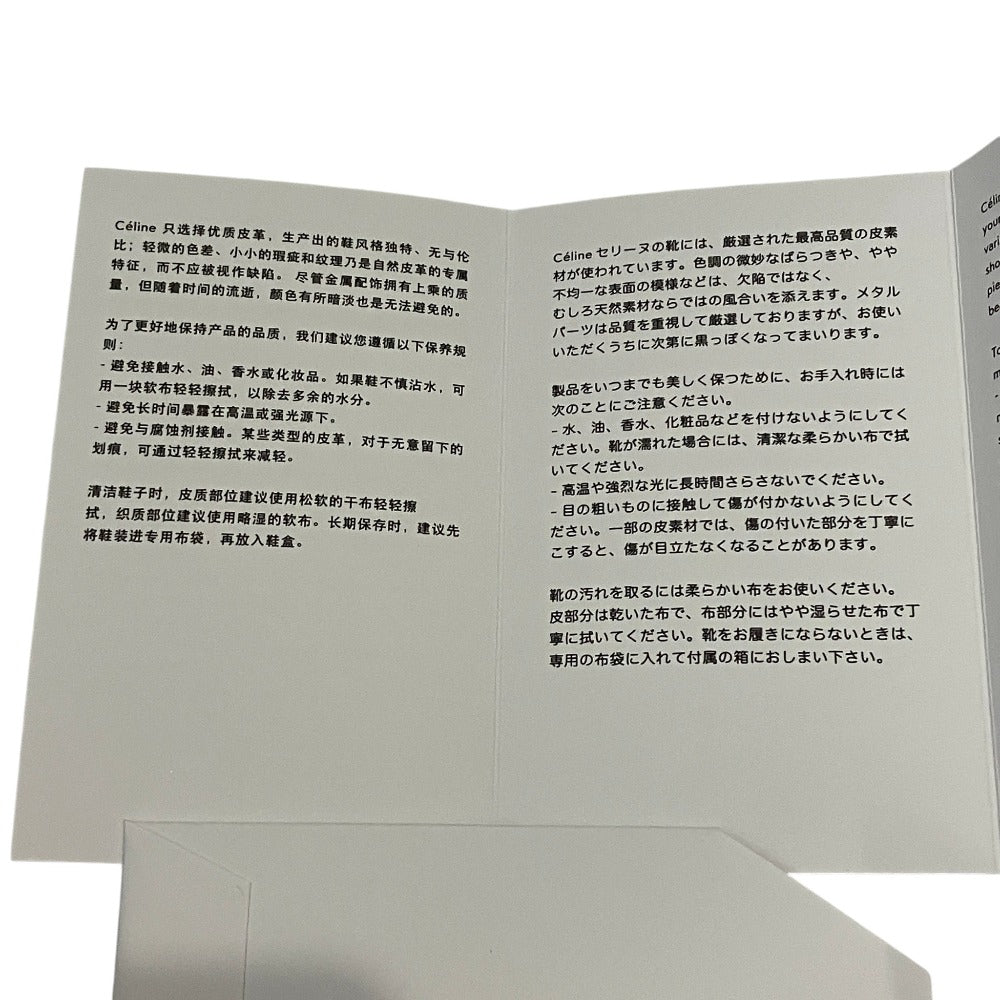 Céline 只选择优质皮革，生产出的鞋风格独特、无与伦
比；轻微的色差、小小的瑕疵和纹理乃是自然皮革的专属
特征，而不应被视作缺陷。 尽管金属配饰拥有上乘的质
量，但随着时间的流逝，颜色有所暗淡也是无法避免的。
为了更好地保持产品的品质，我们建议您遵循以下保养规
则：
- 避免接触水、油、香水或化妆品。如果鞋不慎沾水，可
用一块软布轻轻擦拭，以除去多余的水分。
- 避免长时间暴露在高温或强光源下。
- 避免与腐蚀剂接触。某些类型的皮革，对于无意留下的
划痕，可通过轻轻擦拭来减轻。
清洁鞋子时，皮质部位建议使用松软的干布轻轻擦
拭，织质部位建议使用略湿的软布。长期保存时，建议先
将鞋装进专用布袋，再放入鞋盒。
Céline セリーヌの靴には、厳選された最高品質の皮素
材が使われています。色調の微妙なばらつきや、やや
不均一な表面の模様などは、欠陥ではなく、
むしろ天然素材ならではの風合いを添えます。メタル
パーツは品質を重視して厳選しておりますが、お使い
いただくうちに次第に黒っぽくなってまいります。
製品をいつまでも美しく保つために、お手入れ時には
次のことにご注意ください。
- 水、油、香水、化粧品などを付けないようにしてく
ださい。靴が濡れた場合には、清潔な柔らかい布で拭
いてください。
- 高温や強烈な光に長時間さらさないでください。
- 目の粗いものに接触して傷が付かないようにしてく
ださい。一部の皮素材では、傷の付いた部分を丁寧に
こすると、傷が目立たなくなることがあります。
靴の汚れを取るには柔らかい布をお使いください。
皮部分は乾いた布で、布部分にはやや湿らせた布で丁
寧に拭いてください。靴をお履きにならないときは、
専用の布袋に入れて付属の箱におしまい下さい。